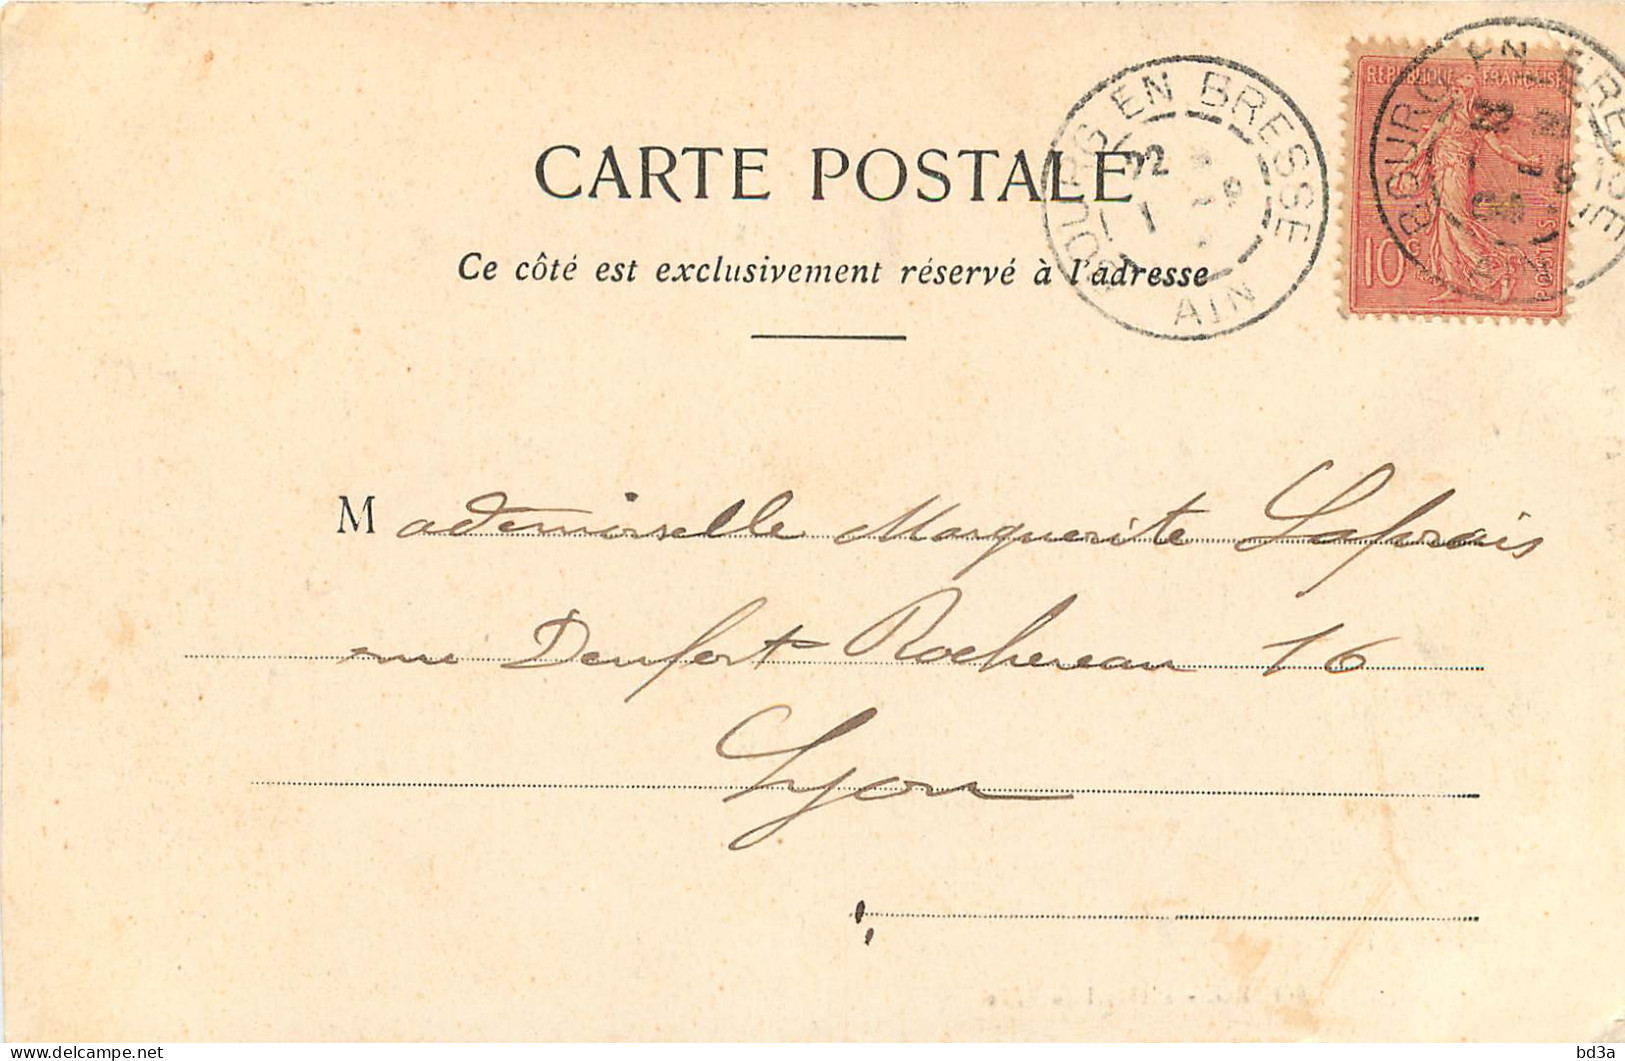 CARTE POSTALE
Ce côté est exclusivement réservé à l'adresse
BOURG EN BRESSE
22
1
AIN
REPUBLIQUE FRANÇAISE
10 c
POSTES
BOURG EN BRESSE
Mademoiselle Marguerite Lafrais
rue Denfert Rochereau 16
Lyon
bd3a